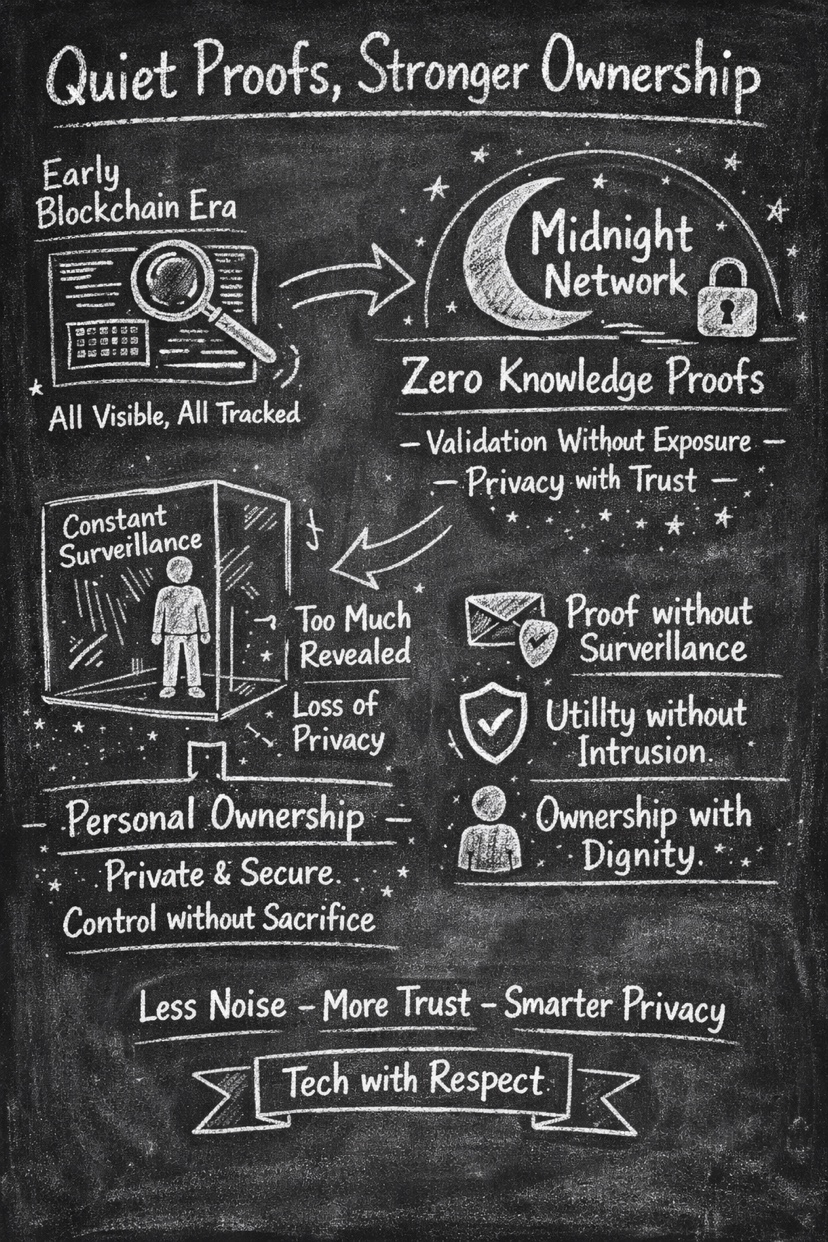 Quiet Proofs, Stronger Ownership
Early
Blockchain Era
All Visible, All Tracked
Midnight
Network
Zero Knowledge Proofs
– Validation Without Exposure –
– Privacy with Trust –
Constant
Surveillance
Too Much
Revealed
Loss of
Privacy
Proof without
Surveillance
Utility without
Intrusion.
Ownership with
Dignity.
– Personal Ownership –
Private & Secure.
Control without Sacrifice
Less Noise – More Trust – Smarter Privacy
Tech with Respect.